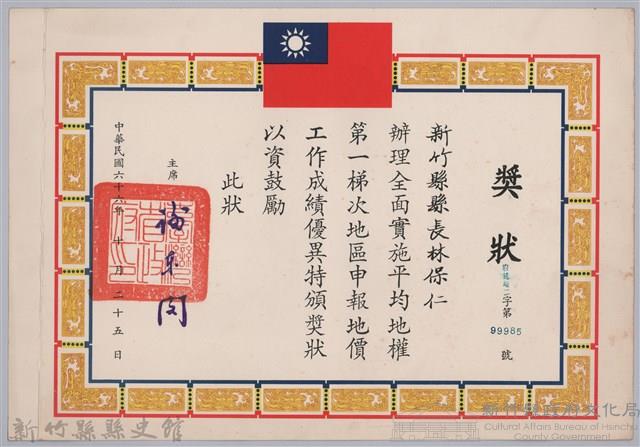 獎狀
二字第
99985
號
新竹縣縣長林保仁
辦理全面實施平均地權
第一梯次地區申報地價
工作成績優異特頒獎狀
以資鼓勵
此狀
主席
中華民國六十六年十月二十五日
新竹縣縣史館
新竹縣政府文化局
Cultural Affairs Bureau of Hsinchu
County Government